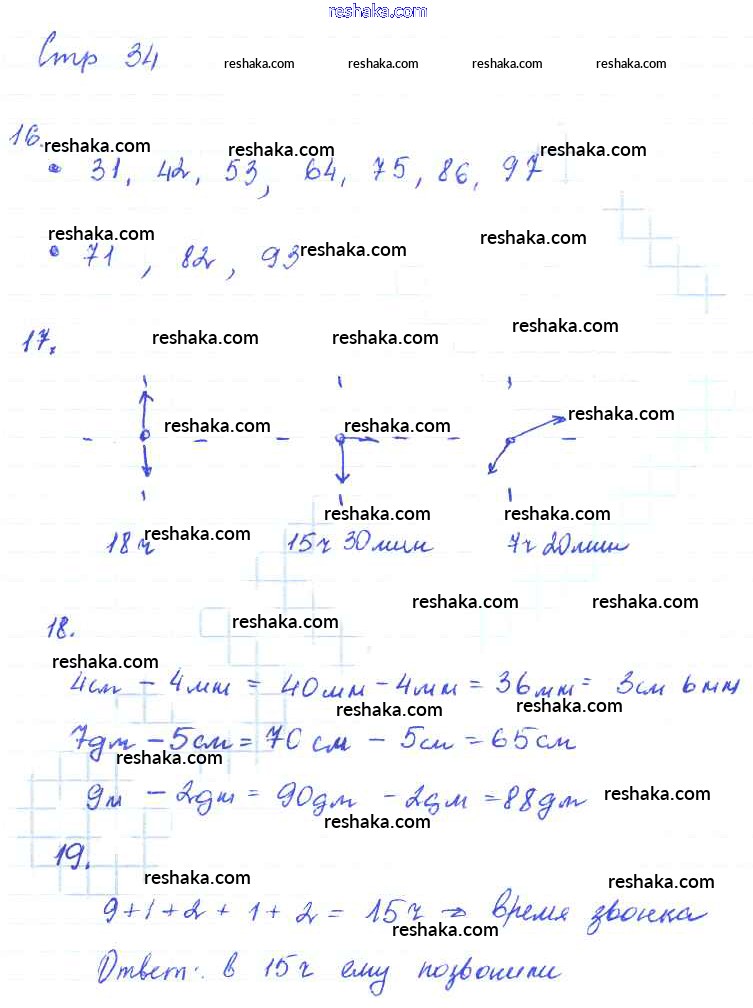 reshaka.com
Стр 34 reshaka.com reshaka.com reshaka.com reshaka.com
16. reshaka.com reshaka.com reshaka.com
• 31, 42, 53, 64, 75, 86, 97
reshaka.com reshaka.com reshaka.com
• 71, 82, 93
17. reshaka.com reshaka.com reshaka.com
reshaka.com reshaka.com reshaka.com
reshaka.com reshaka.com reshaka.com
18 ч 15 ч 30 мин 7 ч 20 мин
reshaka.com reshaka.com
18. reshaka.com
reshaka.com
4 см - 4 мм = 40 мм - 4 мм = 36 мм = 3 см 6 мм
reshaka.com reshaka.com
7 дм - 5 см = 70 см - 5 см = 65 см
reshaka.com
9 м - 2 дм = 90 дм - 2 дм = 88 дм reshaka.com
reshaka.com
19.
reshaka.com reshaka.com
9 + 1 + 2 + 1 + 2 = 15 ч → время звонка
reshaka.com
Ответ: в 15 ч ему позвонили